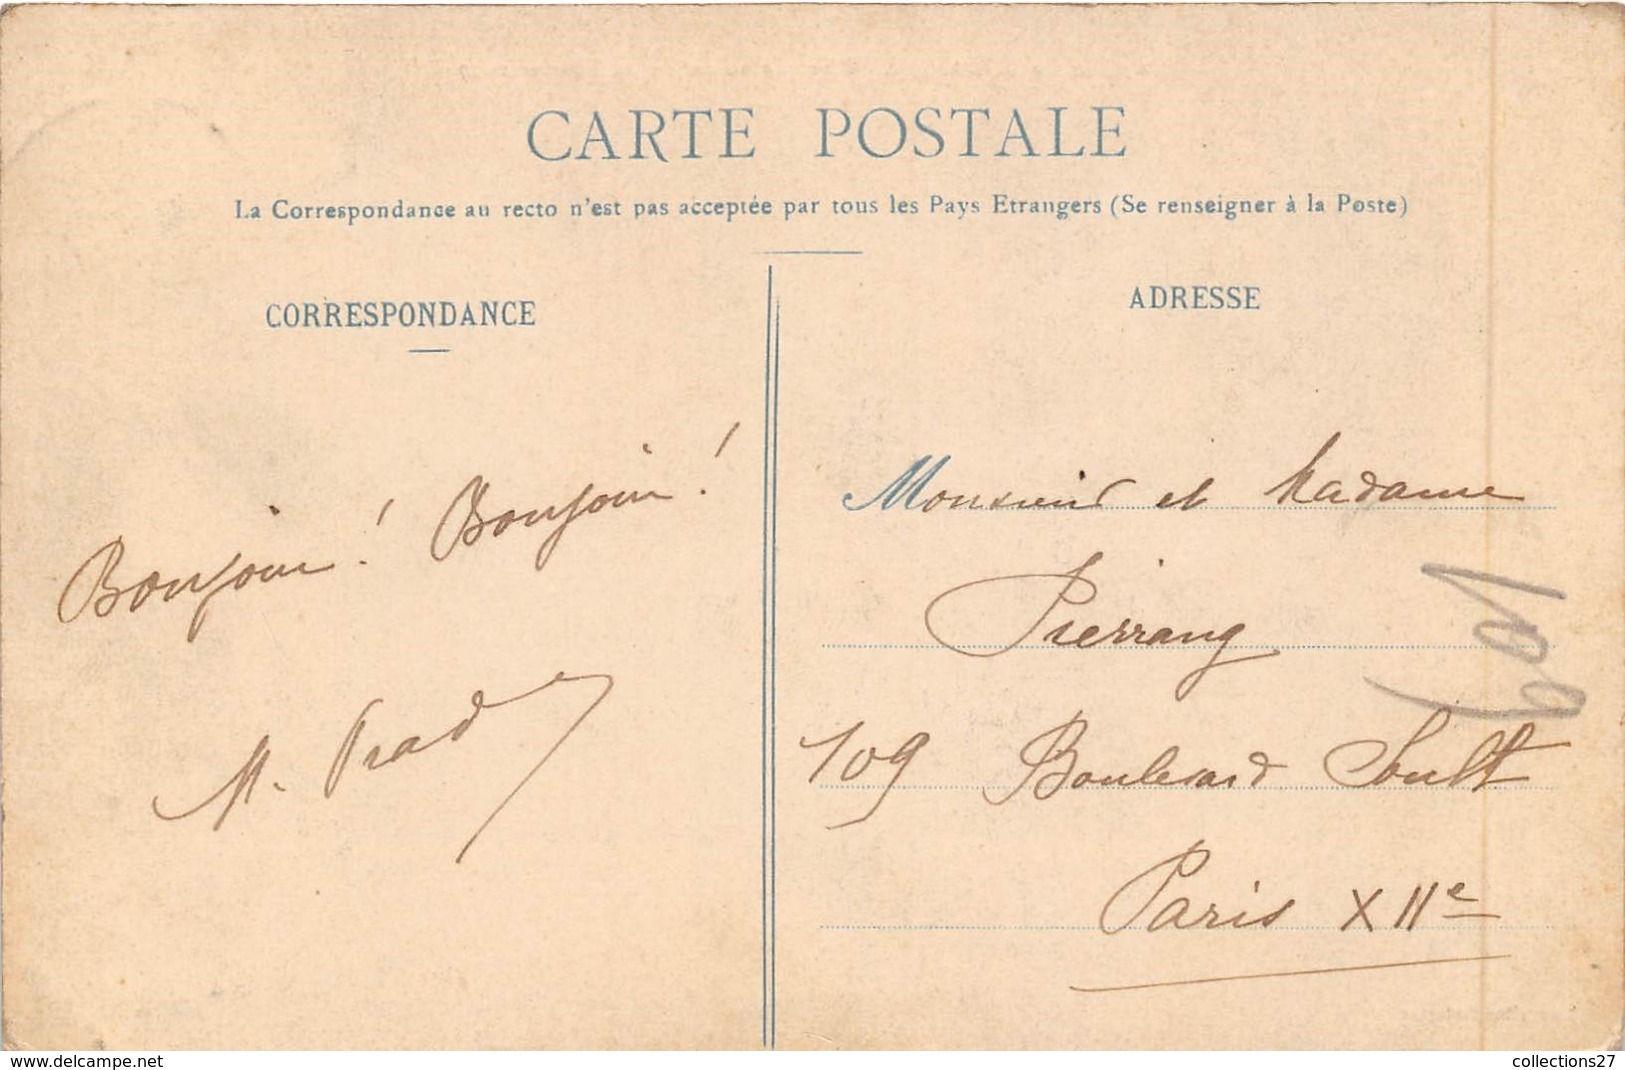 CARTE POSTALE
La Correspondance au recto n'est pas acceptée par tous les Pays Etrangers (Se renseigner à la Poste)
CORRESPONDANCE
Bonjour ! Bonjour !
M. Prad
ADRESSE
Monsieur et Madame
Pierrang
109 Boulevard Soult
Paris XIIe
109
www.delcampe.net
collections27